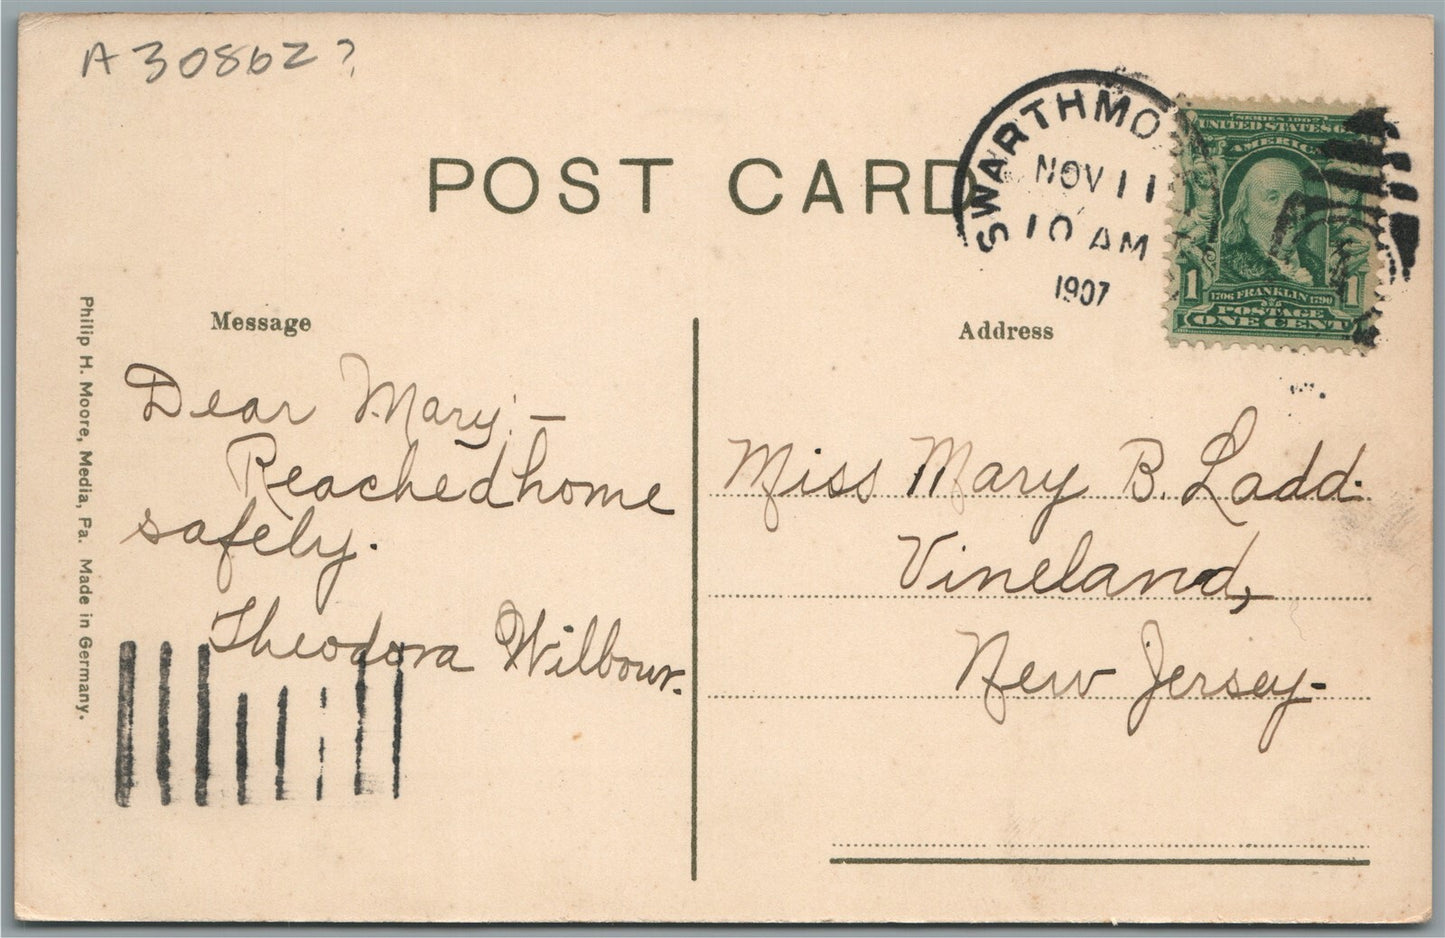 A30862?
POST CARD
SWARTHMO
NOV 11
10 AM
1907
SERIES 1902
UNITED STATES
AMERICA
1 1706 FRANKLIN 1790 1
POSTAGE
ONE CENT
Message
Address
Philip H. Moore, Media, Pa. Made in Germany.
Dear Mary:—
Reached home
safely.
Theodora Wilbour.
Miss Mary B. Ladd.
Vineland,
New Jersey-